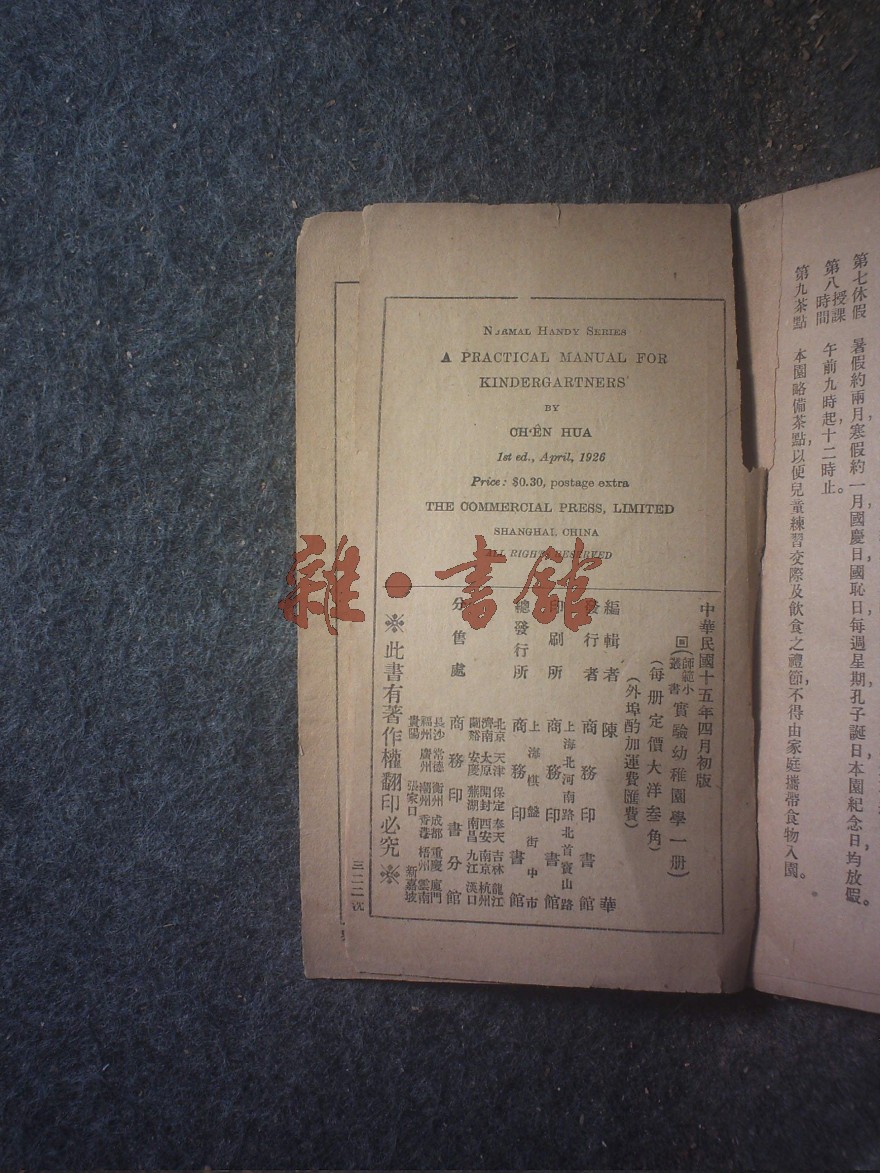 第七休假 暑假約兩月，寒假約一月，國慶日，國恥日，每週星期，孔子誕日，本園紀念日，均放假。
第八授課時間 午前九時起，十二時止。
第九茶點 本園略備茶點，以便兒童練習交際及飲食之禮節，不得由家庭攜帶食物入園。
NORMAL HANDY SERIES
A PRACTICAL MANUAL FOR
KINDERGARTNERS
BY
CH‘ÊN HUA
1st ed., April, 1926
Price: $0.30, postage extra
THE COMMERCIAL PRESS, LIMITED
SHANGHAI, CHINA
ALL RIGHTS RESERVED
中華民國十五年四月初版
回(師範小叢書)實驗幼稚園學一册)
(每册定價大洋叁角)
(外埠酌加運費匯費)
編輯者 陳華
發行者 商務印書館
印刷所 上海北河南路北首寶山路 商務印書館
總發行所 上海棋盤街中市 商務印書館
分售處 商務印書分館
北京 天津 保定 奉天 吉林 龍江
濟南 太原 開封 西安 南京 杭州
蘭谿 安慶 蕪湖 南昌 九江 漢口
長沙 常德 衡州 成都 重慶 廈門
福州 廣州 潮州 香港 梧州 雲南
貴陽 張家口 新嘉坡
※此書有著作權翻印必究※
三二二沈
雜·書館